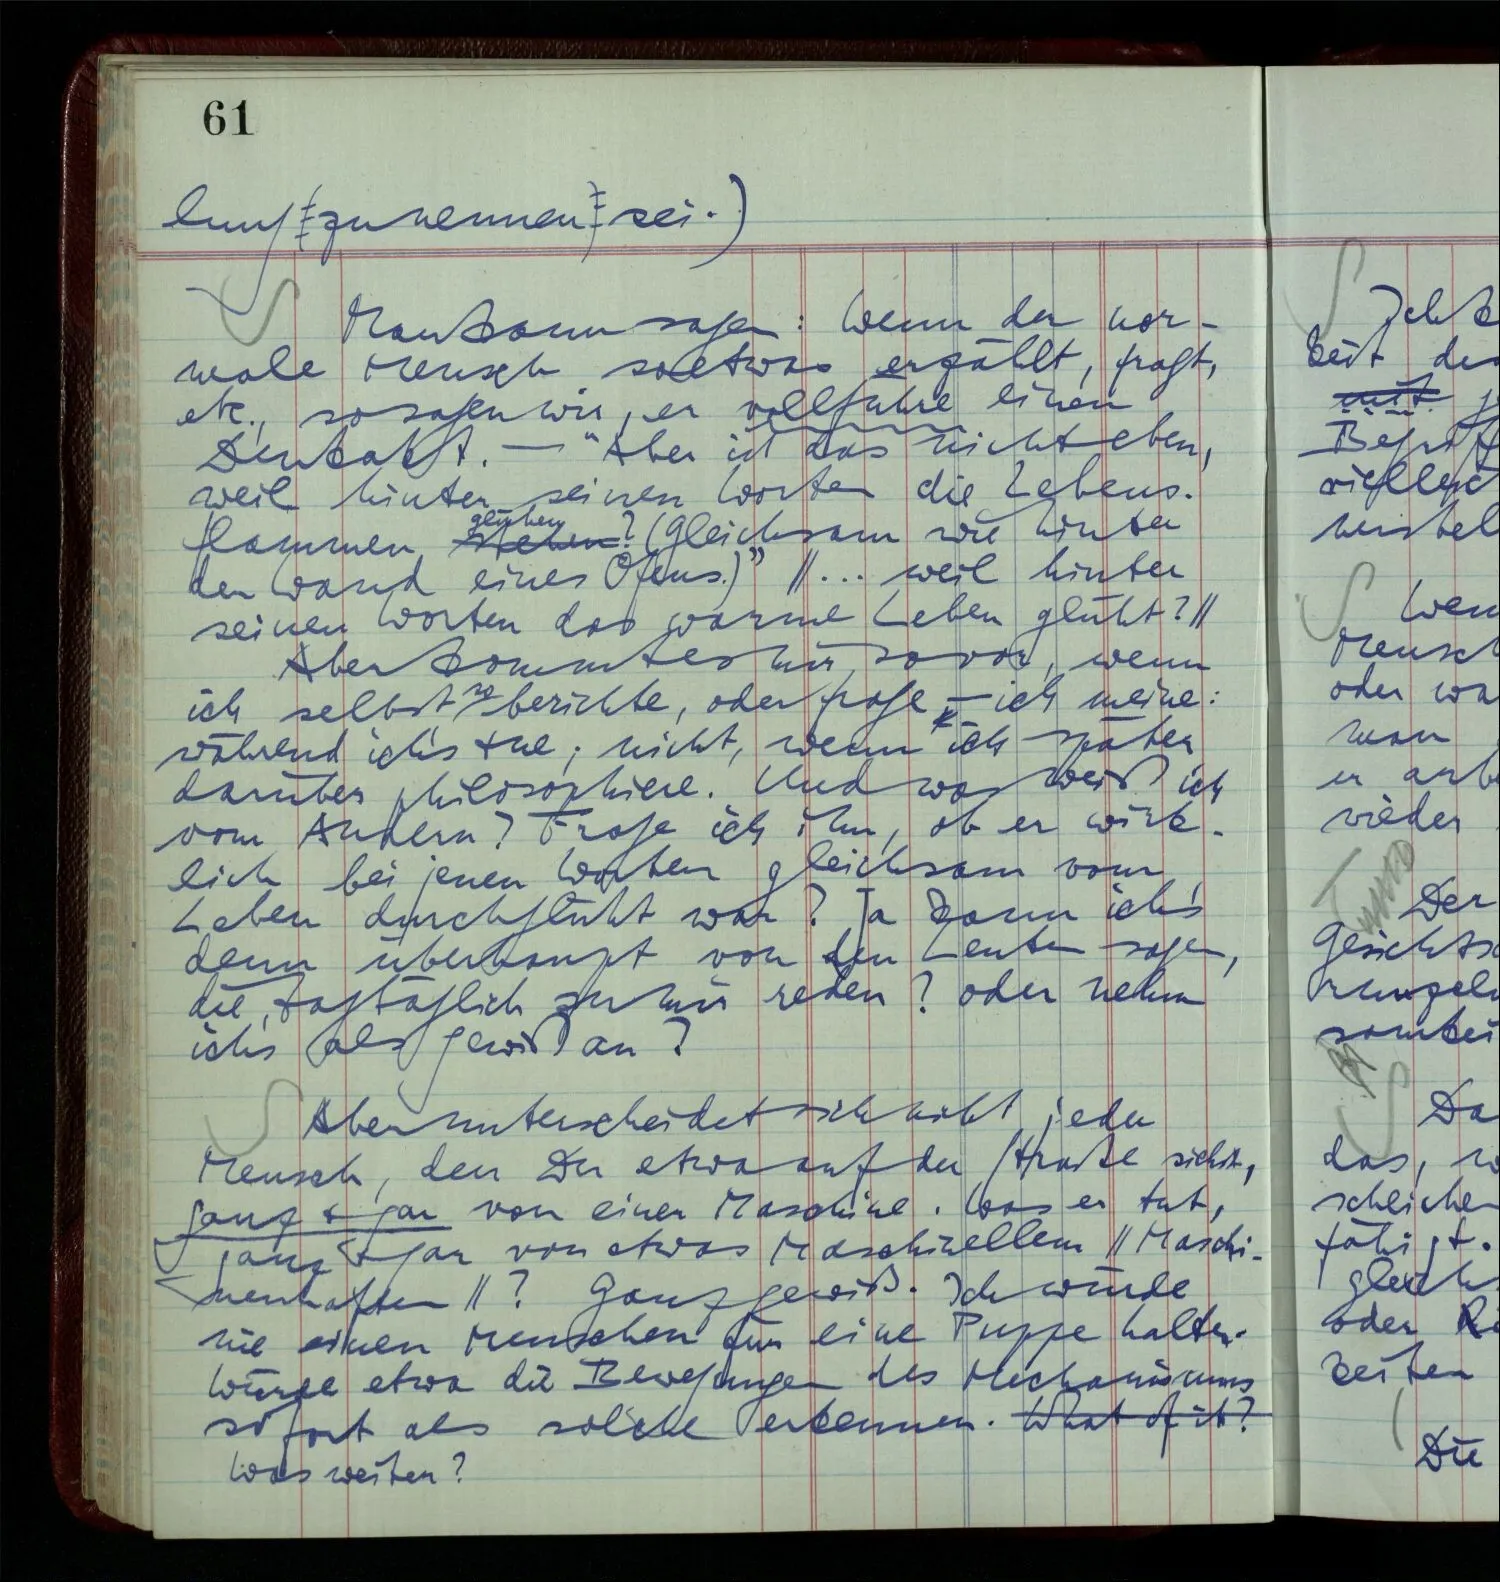 61
lung zu nennen sei.)
Man kann sagen: Wenn der nor-
male Mensch soetwas erzählt, fragt,
etc., so sagen wir, er vollführe einen
Denkakt. — "Aber ist das nicht eben,
weil hinter seinen Worten die Lebens-
flammen stehen glühen? (Gleichsam wie hinter
der Wand eines Ofens.)" //... weil hinter
seinen Worten das warme Leben glüht?//
Aber kommt es mir so vor, wenn
ich selbst so berichte, oder frage, – ich meine:
während ich's tue; nicht, wenn ich später
darüber philosophiere. Und was weiß ich
vom Andern? Frage ich ihn, ob er wirk-
lich bei jenen Worten gleichsam vom
Leben durchglüht war? Ja kann ich's
denn überhaupt von den Leuten sagen,
die tagtäglich zu mir reden? oder nehm
ichs als gewiß an?
Aber unterscheidet sich nicht jeder
Mensch, den Du etwa auf der Straße siehst,
ganz & gar von einer Maschine. Was er tut,
ganz & gar von etwas Maschinellem // Maschi-
nenhaften //? Ganz gewiß. Ich würde
nie einen Menschen für eine Puppe halten.
Würde etwa die Bewegungen des Mechanismus
sofort als solche erkennen. What of it?
Was weiter?
Ich k
keit de
mit
Begriff
vielleich
verstel
Wen
Mensch
oder wa
man
er arb
wieder
Der
Gesichts
runzeln
somkei
Da
das, w
scheiche
oder
keiten
Die